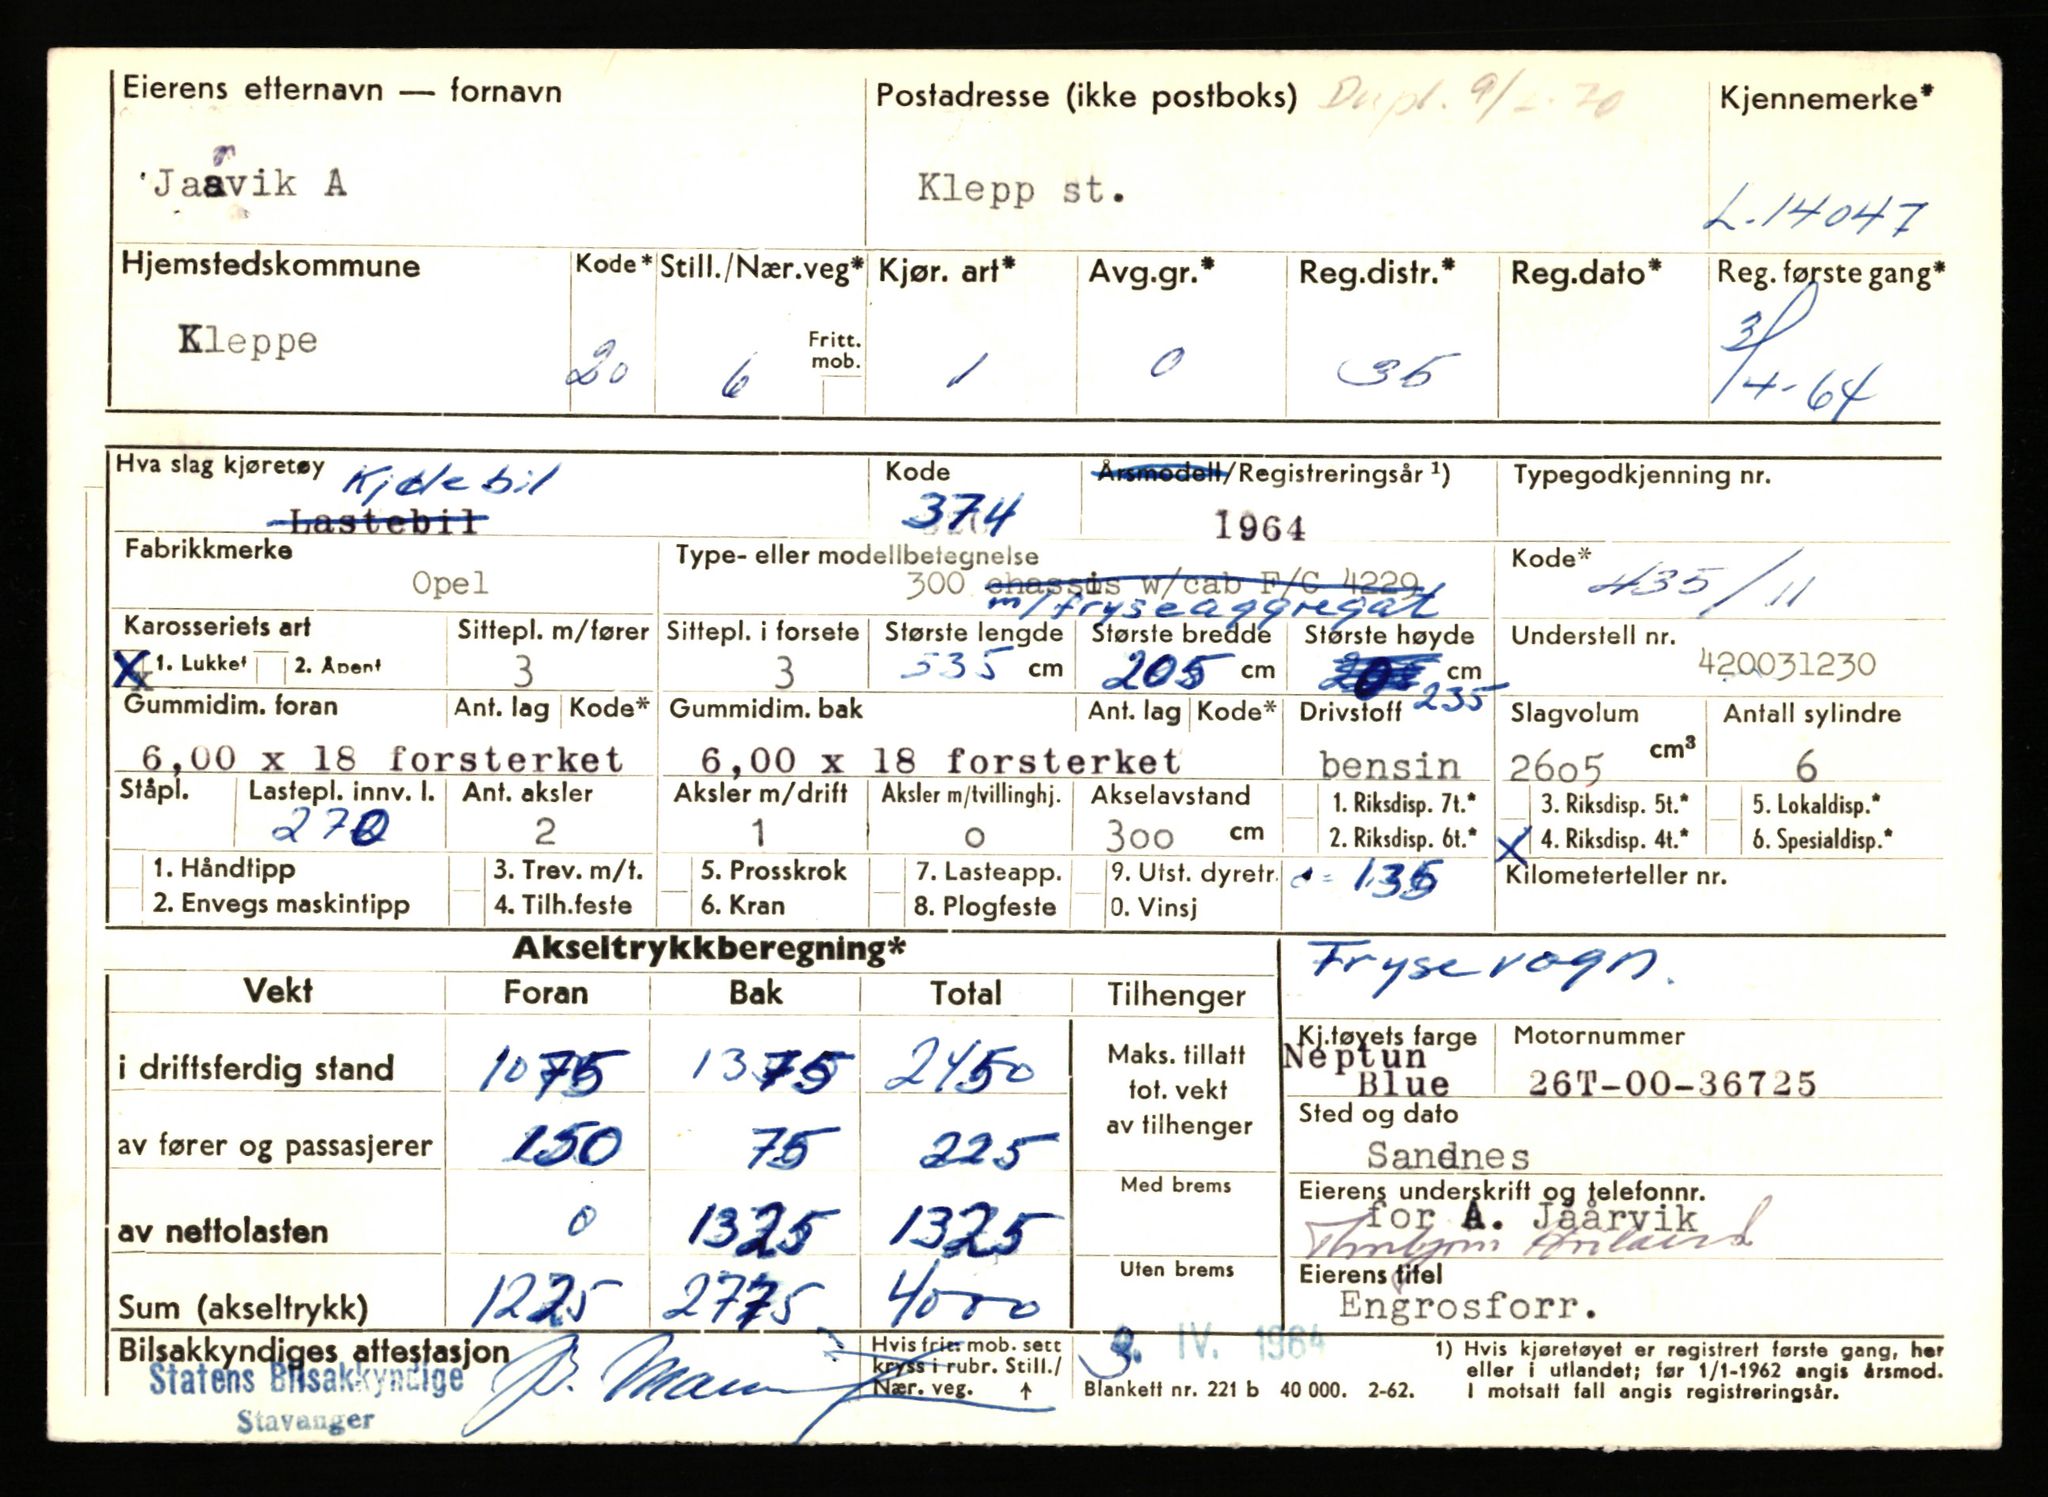 Eierens etternavn — fornavn
Postadresse (ikke postboks) Dupl. 9/2-70
Kjennemerke*
Jaavik A
r
Klepp st.
L.14047
Hjemstedskommune
Kode*
Still./Nær.veg*
Kjør. art*
Avg.gr.*
Reg.distr.*
Reg.dato*
Reg. første gang*
Kleppe
20
6
Fritt. mob.
1
0
35
3/4-64
Hva slag kjøretøy
Kjølebil
Lastebil
Kode
374
Årsmodell/Registreringsår ¹)
1964
Typegodkjenning nr.
Fabrikkmerke
Opel
Type- eller modellbetegnelse
300 chassis w/cab F/C 4229
m/fryseaggregat
Kode*
435/11
Karosseriets art
X 1. Lukket 2. Åpent
Sittepl. m/fører
3
Sittepl. i forsete
3
Største lengde
535 cm
Største bredde
205 cm
Største høyde
cm
235
Understell nr.
420031230
Gummidim. foran
Ant. lag
Kode*
6,00 x 18 forsterket
Gummidim. bak
Ant. lag
Kode*
6,00 x 18 forsterket
Drivstoff
bensin
Slagvolum
2605 cm³
Antall sylindre
6
Ståpl.
Lastepl. innv. l.
270
Ant. aksler
2
Aksler m/drift
1
Aksler m/tvillinghj.
0
Akselavstand
300 cm
1. Riksdisp. 7t.*
2. Riksdisp. 6t.*
3. Riksdisp. 5t.*
X 4. Riksdisp. 4t.*
5. Lokaldisp.*
6. Spesialdisp.*
1. Håndtipp
2. Envegs maskintipp
3. Trev. m/t.
4. Tilh.feste
5. Prosskrok
6. Kran
7. Lasteapp.
8. Plogfeste
9. Utst. dyretr.
0. Vinsj
= 135
Kilometerteller nr.
Akseltrykkberegning*
Frysevogn.
Vekt
Foran
Bak
Total
Tilhenger
i driftsferdig stand
1075
1375
2450
Maks. tillatt
tot. vekt
av tilhenger
av fører og passasjerer
150
75
225
av nettolasten
0
1325
1325
Med brems
Sum (akseltrykk)
1225
2775
4000
Uten brems
Kj.tøyets farge
Neptun
Blue
Motornummer
26T-00-36725
Sted og dato
Sandnes
Eierens underskrift og telefonnr.
for A. Jåårvik
Eierens titel
Engrosforr.
Bilsakkyndiges attestasjon
Statens Bilsakkyndige
Stavanger
Hvis fritt mob. sett
kryss i rubr. Still./
Nær. veg. ↑
3. IV. 1964
Blankett nr. 221 b 40 000. 2-62.
1) Hvis kjøretøyet er registrert første gang, her
eller i utlandet; før 1/1-1962 angis årsmod.
I motsatt fall angis registreringsår.